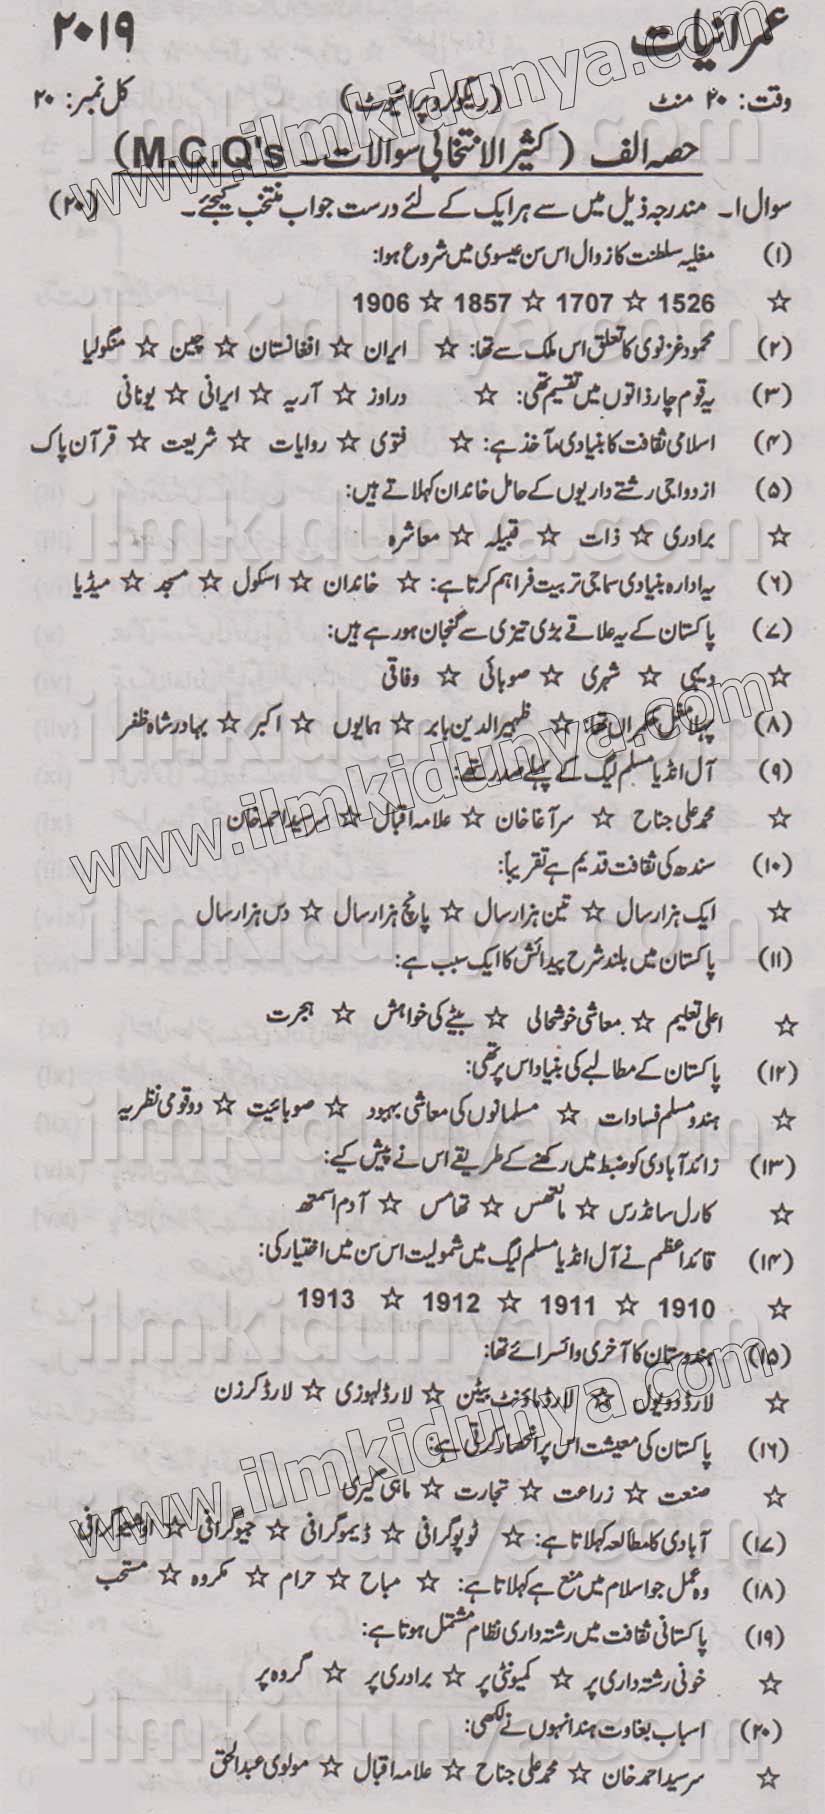 عمرانیات ۲۰۱۹
وقت: ۲۰ منٹ (ریگولر و پرائیوٹ) کل نمبر: ۲۰
حصہ الف (کثیر الانتخابی سوالات۔ M.C.Q's)
سوال ۱۔ مندرجہ ذیل میں سے ہر ایک کے لئے درست جواب منتخب کیجئے۔ (۲۰)
(۱) مغلیہ سلطنت کا زوال اس سن عیسوی میں شروع ہوا:
☆ 1526 ☆ 1707 ☆ 1857 ☆ 1906
(۲) محمود غزنوی کا تعلق اس ملک سے تھا: ☆ ایران ☆ افغانستان ☆ چین ☆ منگولیا
(۳) یہ قوم چار ذاتوں میں تقسیم تھی: ☆ دراوڑ ☆ آریہ ☆ ایرانی ☆ یونانی
(۴) اسلامی ثقافت کا بنیادی مآخذ ہے: ☆ فتوی ☆ روایات ☆ شریعت ☆ قرآن پاک
(۵) ازدواجی رشتے داریوں کے حامل خاندان کہلاتے ہیں:
☆ برادری ☆ ذات ☆ قبیلہ ☆ معاشرہ
(۶) یہ ادارہ بنیادی سماجی تربیت فراہم کرتا ہے: ☆ خاندان ☆ اسکول ☆ مسجد ☆ میڈیا
(۷) پاکستان کے یہ علاقے بڑی تیزی سے گنجان ہو رہے ہیں:
☆ دیہی ☆ شہری ☆ صوبائی ☆ وفاقی
(۸) پہلا مغل حکمراں تھا: ☆ ظہیر الدین بابر ☆ ہمایوں ☆ اکبر ☆ بہادر شاہ ظفر
(۹) آل انڈیا مسلم لیگ کے پہلے صدر تھے:
☆ محمد علی جناح ☆ سر آغا خان ☆ علامہ اقبال ☆ سرسید احمد خان
(۱۰) سندھ کی ثقافت قدیم ہے تقریباً:
☆ ایک ہزار سال ☆ تین ہزار سال ☆ پانچ ہزار سال ☆ دس ہزار سال
(۱۱) پاکستان میں بلند شرح پیدائش کا ایک سبب ہے:
☆ اعلی تعلیم ☆ معاشی خوشحالی ☆ بیٹے کی خواہش ☆ ہجرت
(۱۲) پاکستان کے مطالبے کی بنیاد اس پر تھی:
☆ ہندو مسلم فسادات ☆ مسلمانوں کی معاشی بہبود ☆ صوبائیت ☆ دو قومی نظریہ
(۱۳) زائد آبادی کو ضبط میں رکھنے کے طریقے اس نے پیش کیے:
☆ کارل سانڈرس ☆ مالتھس ☆ تھامس ☆ آدم اسمتھ
(۱۴) قائداعظم نے آل انڈیا مسلم لیگ میں شمولیت اس سن میں اختیار کی:
☆ 1910 ☆ 1911 ☆ 1912 ☆ 1913
(۱۵) ہندوستان کا آخری وائسرائے تھا:
☆ لارڈ دویول ☆ لارڈ ماؤنٹ بیٹن ☆ لارڈ لہوزی ☆ لارڈ کرزن
(۱۶) پاکستان کی معیشت اس پر انحصار کرتی ہے:
☆ صنعت ☆ زراعت ☆ تجارت ☆ ماہی گیری
(۱۷) آبادی کا مطالعہ کہلاتا ہے: ☆ ٹوپوگرافی ☆ ڈیموگرافی ☆ جیوگرافی ☆ اوشینوگرافی
(۱۸) وہ عمل جو اسلام میں منع ہے کہلاتا ہے: ☆ مباح ☆ حرام ☆ مکروہ ☆ مستحب
(۱۹) پاکستانی ثقافت میں رشتہ داری نظام مشتمل ہوتا ہے:
☆ خونی رشتہ داری پر ☆ کمیونٹی پر ☆ برادری پر ☆ گروہ پر
(۲۰) اسباب بغاوت ہند انہوں نے لکھی:
☆ سرسید احمد خان ☆ محمد علی جناح ☆ علامہ اقبال ☆ مولوی عبدالحق
www.ilmkidunya.com
www.ilmkidunya.com
www.ilmkidunya.com
ilmkidunya.com
ilmkidunya.com
ilmkidunya.com
ilmkidunya.com
ilmkidunya.com
ilmkidunya.com
ilmkidunya.com
ilmkidunya.com
ilmkidunya.com